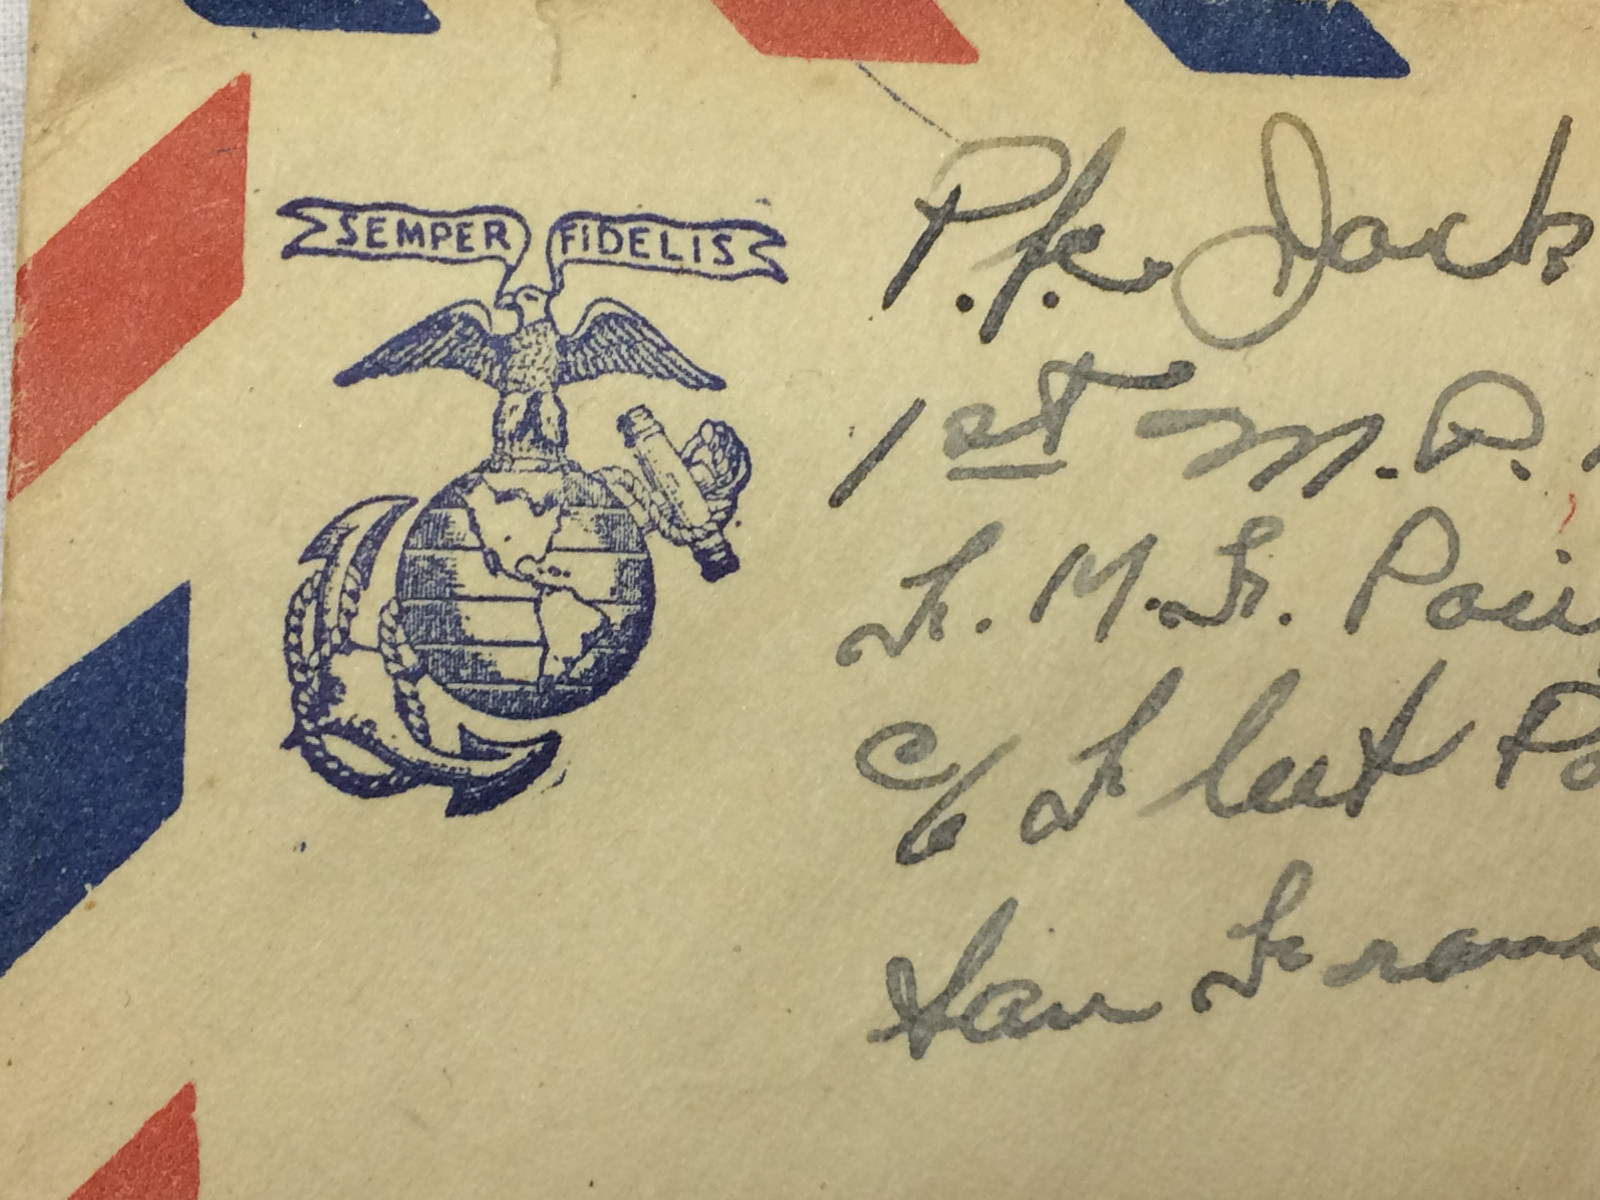 SEMPER FIDELIS
P.f.c. Jack
1st M.P.
F.M.F. Paci
c/o Fleet Po
San Franc